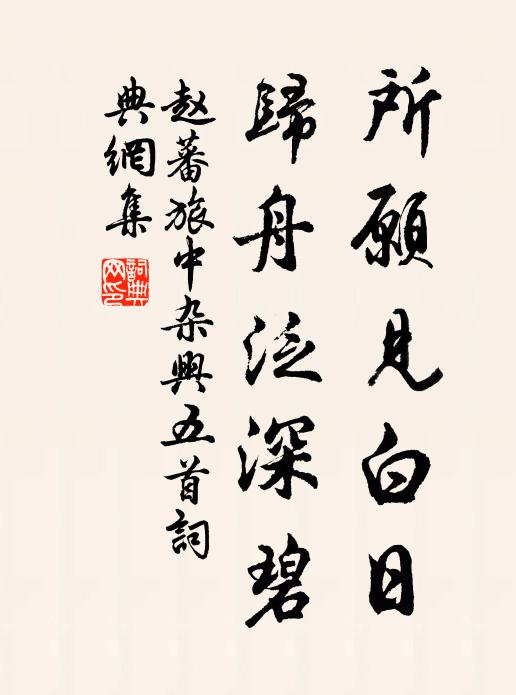 所願見白日
歸舟泛深碧
赵蕃旅中杂興五首詞
典網集
詞典
网印